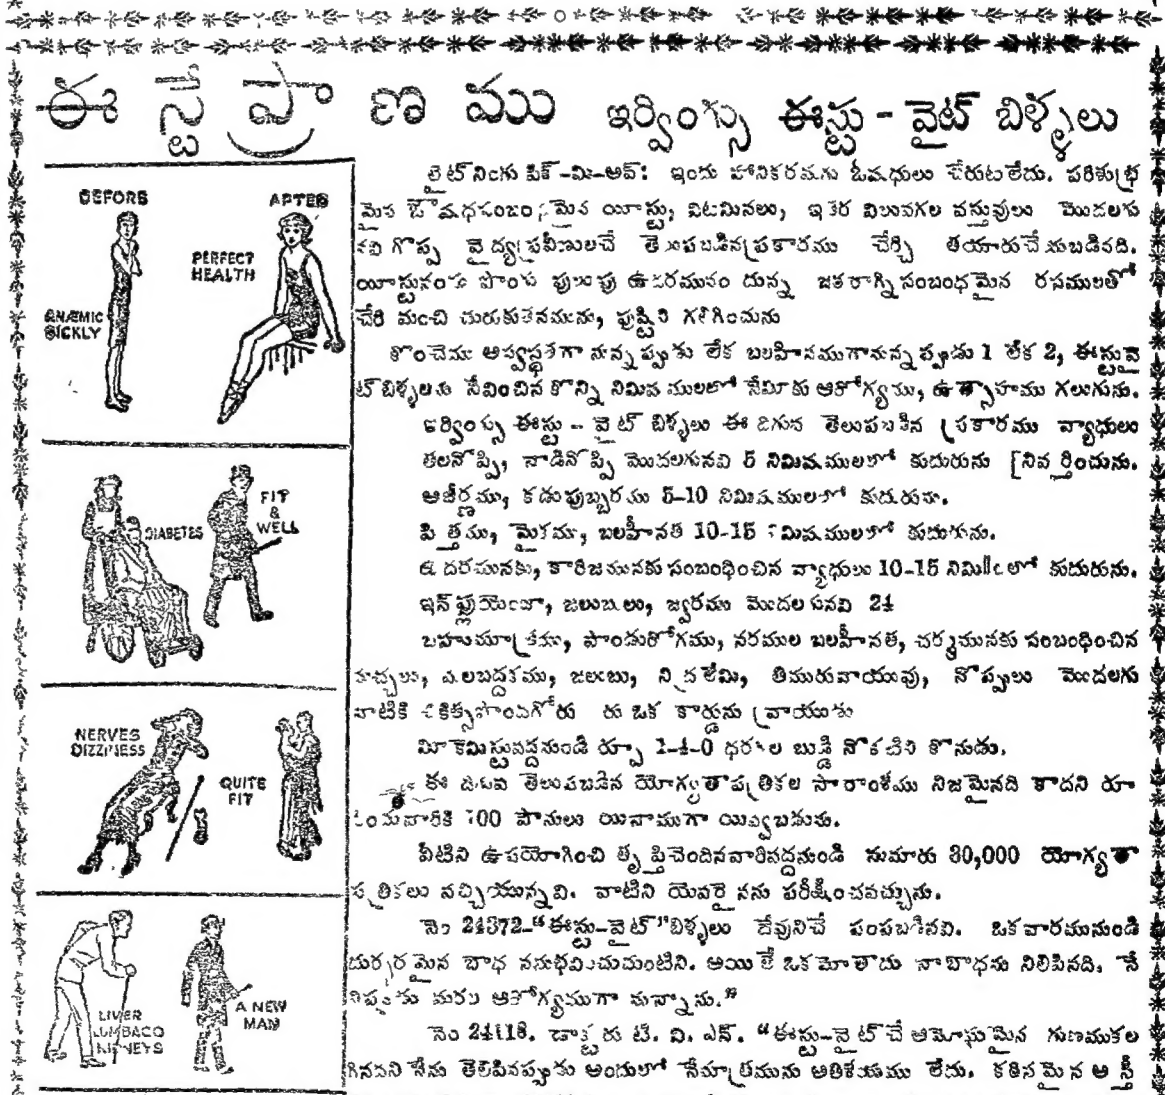 ఈ స్టే ప్రా ణ ము ఇర్వింగ్సు ఈస్టు - వైట్ బిళ్ళలు
BEFORE
AFTER
PERFECT
HEALTH
ANÆMIC
SICKLY
DIABETES
FIT
&
WELL
NERVES
DIZZINESS
QUITE
FIT
LIVER
LUMBAGO
KIDNEYS
A NEW
MAN
లైట్ నింగు పిక్-మి-అప్: ఇందు హానికరమగు ఓషధులు చేరుటలేదు. పరిశుభ్ర
మైన యీస్టు, విటమినలు, ఇతర విలువగల వస్తువులు మొదలగు
గొప్ప వైద్య ప్రవీణులచే తెలుపబడిన ప్రకారము చేర్చి తయారుచేయబడినది.
పులుపు ఉదరమునం దున్న జఠరాగ్ని సంబంధమైన రసములతో
చేరి మంచి చురుకుతనమును, పుష్టిని గలిగించును
కొంచెము లేక బలహీనముగానున్నప్పుడు 1 లేక 2, ఈస్టువై
ట్ బిళ్ళలను సేవించిన కొన్ని నిమిషములలో మీకు ఆరోగ్యము, ఉత్సాహము గలుగును.
ఇర్వింగ్సు ఈస్టు - వైట్ బిళ్ళలు ఈ దిగువ తెలుపబడిన ప్రకారము వ్యాధులు
తలనొప్పి, నాడినొప్పి మొదలగునవి 5 నిమిషములలో కుదురును [నివర్తించును.
అజీర్ణము, కడుపుబ్బరము 5-10 నిమిషములలో కుదురును.
పిత్తము, మైకము, బలహీనత 10-15 నిమిషములలో కుదురును.
ఉదరమునకు, కారిజమునకు సంబంధించిన వ్యాధులు 10-15 లో కుదురును.
ఇన్‌ఫ్లుయెంజా, జలుబులు, జ్వరము మొదలగునవి 24
బహుమూత్రము, పాండురోగము, నరముల బలహీనత, చర్మమునకు సంబంధించిన
మచ్చలు, మలబద్దకము, జలుబు, నిద్రలేమి, తిమురువాయువు, నొప్పులు మొదలగు
వాటికి ఒక కార్డును వ్రాయుడు
మీ కెమిస్టువద్దనుండి రూప 1-4-0 ధరగల బుడ్డి నొకటిని కొనుడు.
ఈ దిగువ తెలుపబడిన యోగ్యతాపత్రికల సారాంశము నిజమైనది కాదని రూ
100 పౌనులు యినాముగా యివ్వబడును.
వీటిని ఉపయోగించి తృప్తిచెందినవారివద్దనుండి సుమారు 30,000 యోగ్యతా
పత్రికలు వచ్చియున్నవి. వాటిని యెవరైనను పరీక్షించవచ్చును.
నెం 24372-"ఈస్టు-వైట్" బిళ్ళలు దేవునిచే పంపబడినవి. ఒకవారమునుండి
దుర్భరమైన బాధ ననుభవించుచుంటిని. అయితే ఒకమోతాదు నా బాధను నిలిపినది, నే
నిప్పుడు ఆరోగ్యముగా నున్నాను."
నెం 24118. డాక్టరు టి. వి. ఎన్. "ఈస్టు-వైట్ చే ఆమోఘమైన గుణముకల
నేను తెలిపినప్పుడు అందులో అతిశయము లేదు. కఠినమైన